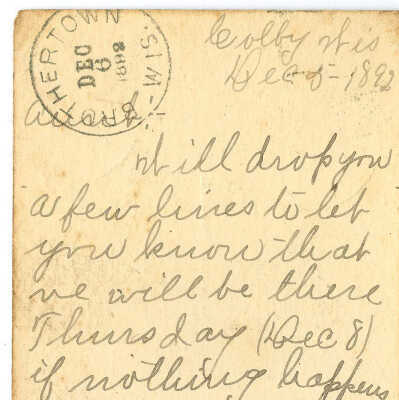 BROTHERTOWN WIS.
DEC
6
1892
Colby Wis
Dec 5 - 1892
Will drop you
a few lines to let
you know that
we will be there
Thursday (Dec 8)
if nothing happens